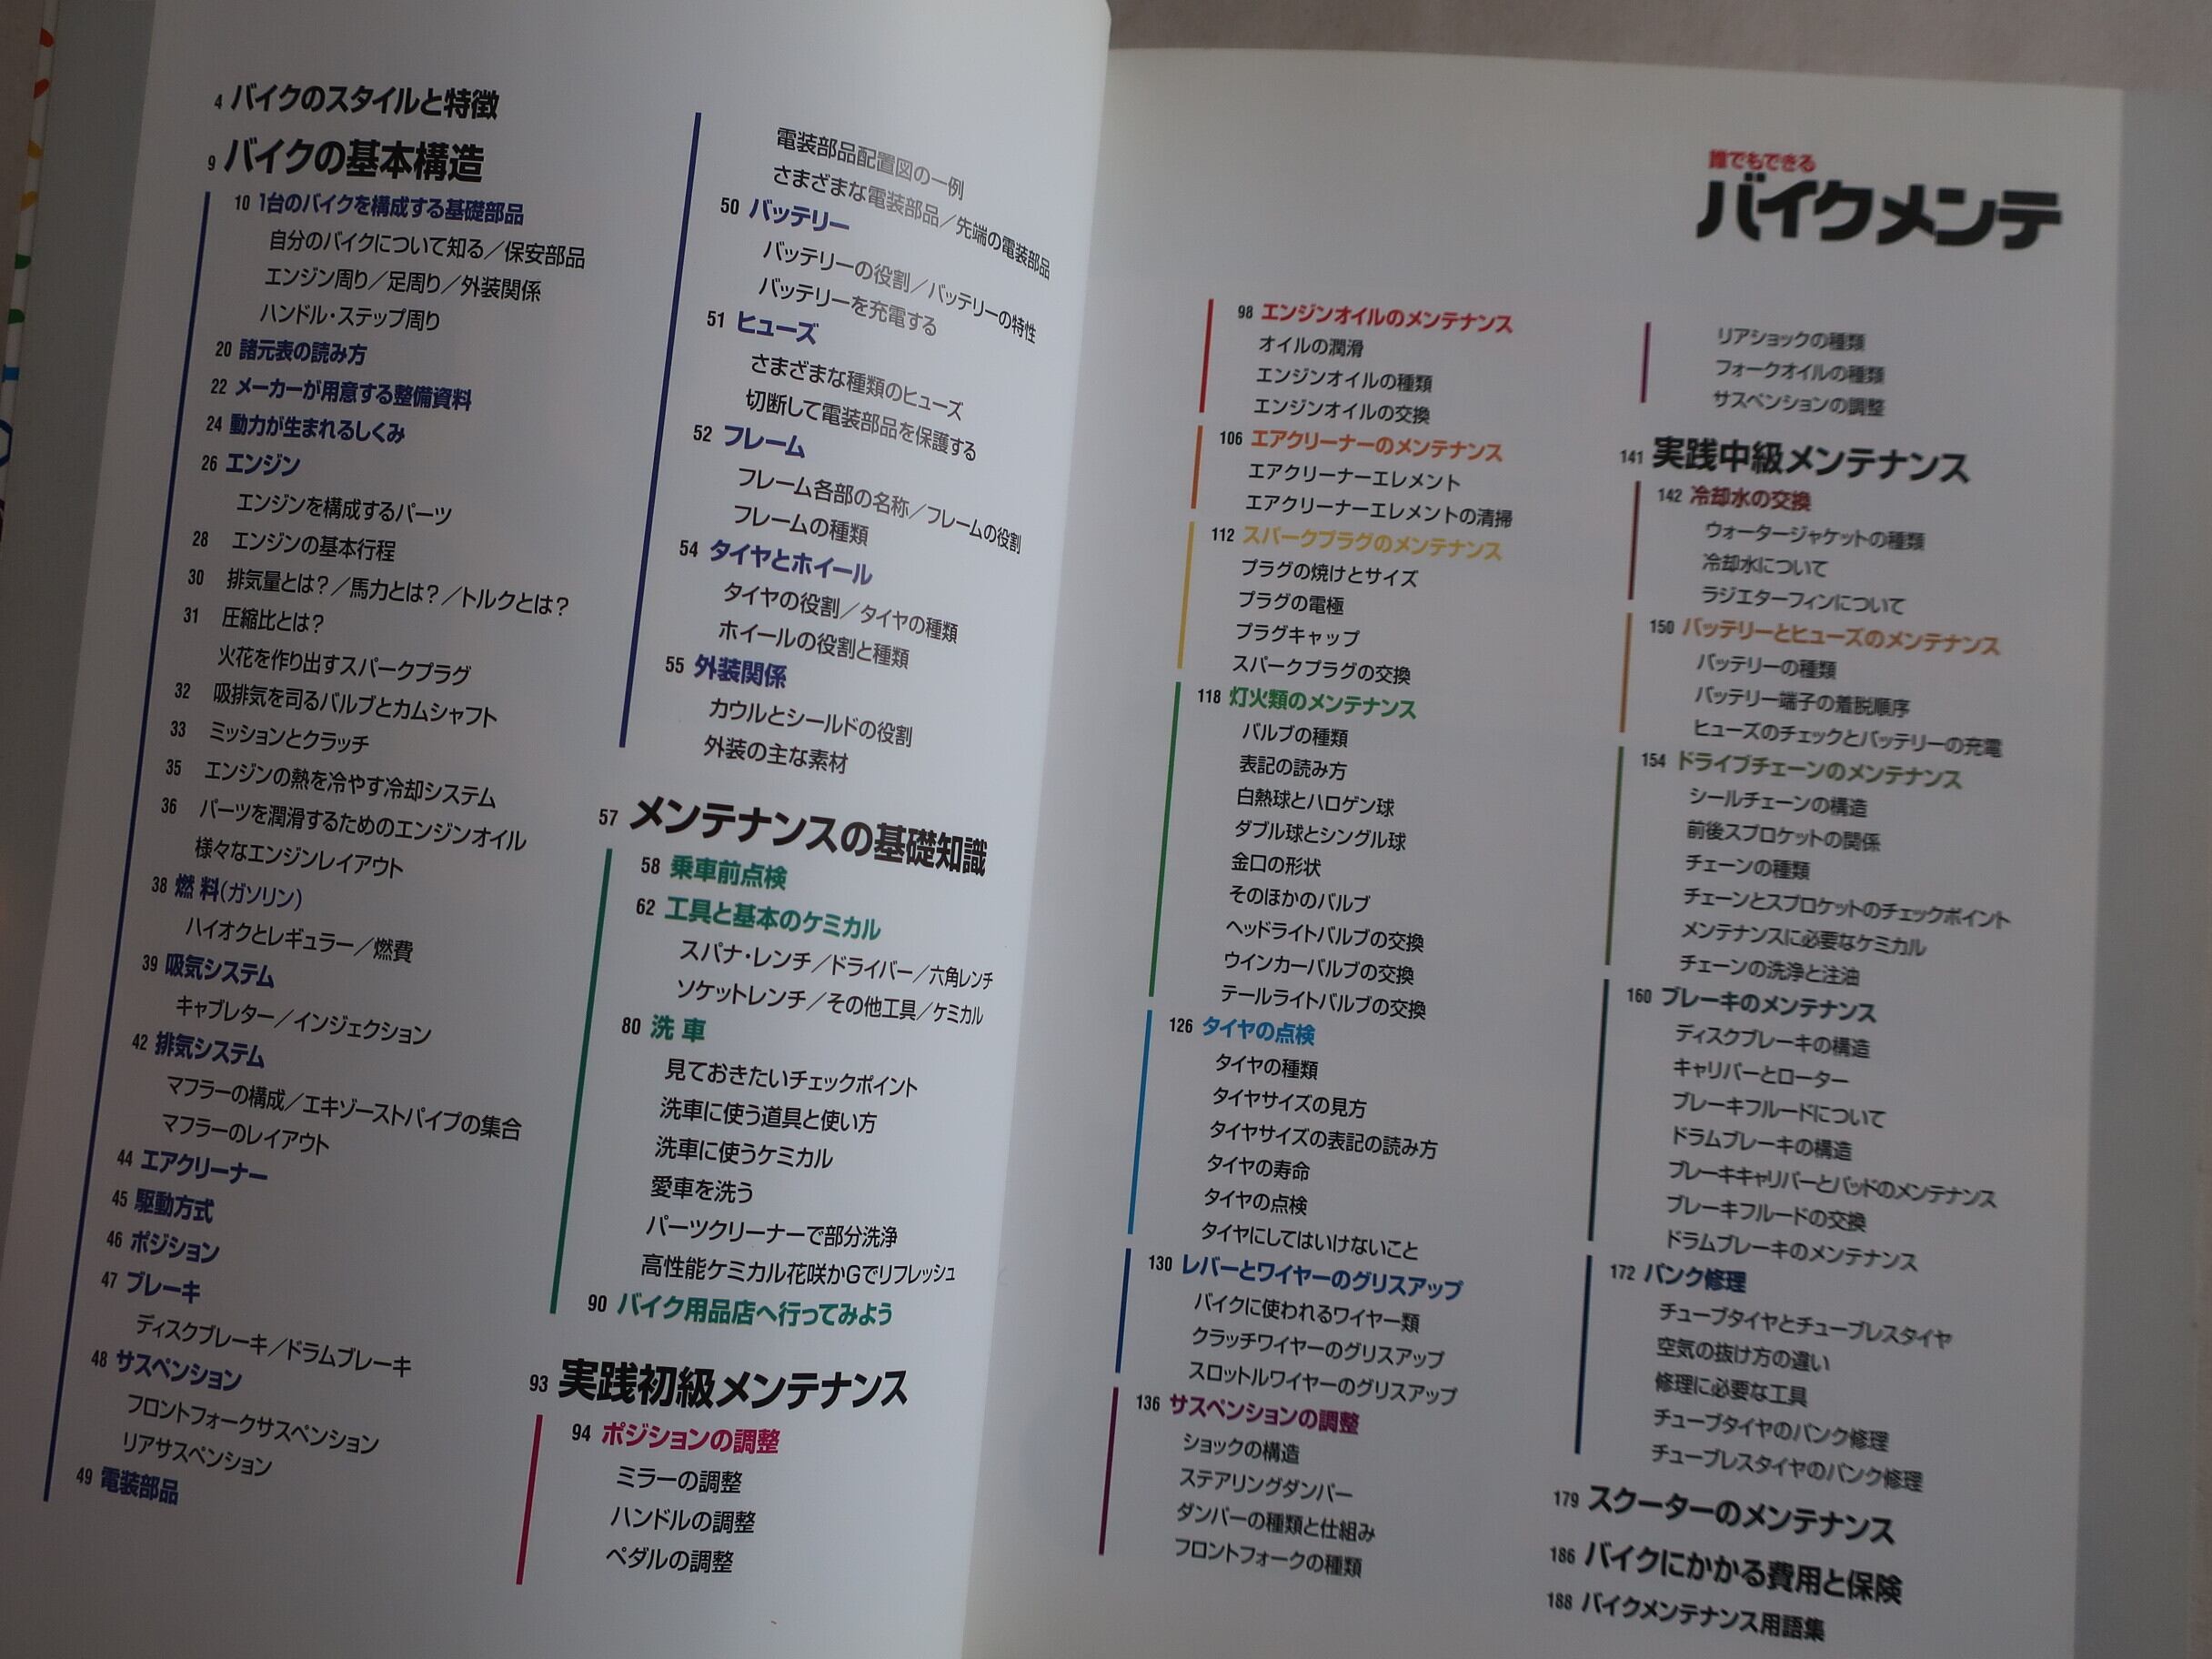 4 バイクのスタイルと特徴
9 バイクの基本構造
10 1台のバイクを構成する基礎部品
自分のバイクについて知る／保安部品
エンジン周り／足周り／外装関係
ハンドル・ステップ周り
20 諸元表の読み方
22 メーカーが用意する整備資料
24 動力が生まれるしくみ
26 エンジン
エンジンを構成するパーツ
28 エンジンの基本行程
30 排気量とは？／馬力とは？／トルクとは？
31 圧縮比とは？
火花を作り出すスパークプラグ
32 吸排気を司るバルブとカムシャフト
33 ミッションとクラッチ
35 エンジンの熱を冷やす冷却システム
36 パーツを潤滑するためのエンジンオイル
様々なエンジンレイアウト
38 燃 料(ガソリン)
ハイオクとレギュラー／燃費
39 吸気システム
キャブレター／インジェクション
42 排気システム
マフラーの構成／エキゾーストパイプの集合
マフラーのレイアウト
44 エアクリーナー
45 駆動方式
46 ポジション
47 ブレーキ
ディスクブレーキ／ドラムブレーキ
48 サスペンション
フロントフォークサスペンション
リアサスペンション
49 電装部品
電装部品配置図の一例
さまざまな電装部品／先端の電装部品
50 バッテリー
バッテリーの役割／バッテリーの特性
バッテリーを充電する
51 ヒューズ
さまざまな種類のヒューズ
切断して電装部品を保護する
52 フレーム
フレーム各部の名称／フレームの役割
フレームの種類
54 タイヤとホイール
タイヤの役割／タイヤの種類
ホイールの役割と種類
55 外装関係
カウルとシールドの役割
外装の主な素材
57 メンテナンスの基礎知識
58 乗車前点検
62 工具と基本のケミカル
スパナ・レンチ／ドライバー／六角レンチ
ソケットレンチ／その他工具／ケミカル
80 洗 車
見ておきたいチェックポイント
洗車に使う道具と使い方
洗車に使うケミカル
愛車を洗う
パーツクリーナーで部分洗浄
高性能ケミカル花咲かGでリフレッシュ
90 バイク用品店へ行ってみよう
93 実践初級メンテナンス
94 ポジションの調整
ミラーの調整
ハンドルの調整
ペダルの調整
誰でもできる
バイクメンテ
98 エンジンオイルのメンテナンス
オイルの潤滑
エンジンオイルの種類
エンジンオイルの交換
106 エアクリーナーのメンテナンス
エアクリーナーエレメント
エアクリーナーエレメントの清掃
112 スパークプラグのメンテナンス
プラグの焼けとサイズ
プラグの電極
プラグキャップ
スパークプラグの交換
118 灯火類のメンテナンス
バルブの種類
表記の読み方
白熱球とハロゲン球
ダブル球とシングル球
金口の形状
そのほかのバルブ
ヘッドライトバルブの交換
ウインカーバルブの交換
テールライトバルブの交換
126 タイヤの点検
タイヤの種類
タイヤサイズの見方
タイヤサイズの表記の読み方
タイヤの寿命
タイヤの点検
タイヤにしてはいけないこと
130 レバーとワイヤーのグリスアップ
バイクに使われるワイヤー類
クラッチワイヤーのグリスアップ
スロットルワイヤーのグリスアップ
136 サスペンションの調整
ショックの構造
ステアリングダンパー
ダンパーの種類と仕組み
フロントフォークの種類
リアショックの種類
フォークオイルの種類
サスペンションの調整
141 実践中級メンテナンス
142 冷却水の交換
ウォータージャケットの種類
冷却水について
ラジエターフィンについて
150 バッテリーとヒューズのメンテナンス
バッテリーの種類
バッテリー端子の着脱順序
ヒューズのチェックとバッテリーの充電
154 ドライブチェーンのメンテナンス
シールチェーンの構造
前後スプロケットの関係
チェーンの種類
チェーンとスプロケットのチェックポイント
メンテナンスに必要なケミカル
チェーンの洗浄と注油
160 ブレーキのメンテナンス
ディスクブレーキの構造
キャリパーとローター
ブレーキフルードについて
ドラムブレーキの構造
ブレーキキャリパーとパッドのメンテナンス
ブレーキフルードの交換
ドラムブレーキのメンテナンス
172 パンク修理
チューブタイヤとチューブレスタイヤ
空気の抜け方の違い
修理に必要な工具
チューブタイヤのパンク修理
チューブレスタイヤのパンク修理
179 スクーターのメンテナンス
186 バイクにかかる費用と保険
188 バイクメンテナンス用語集